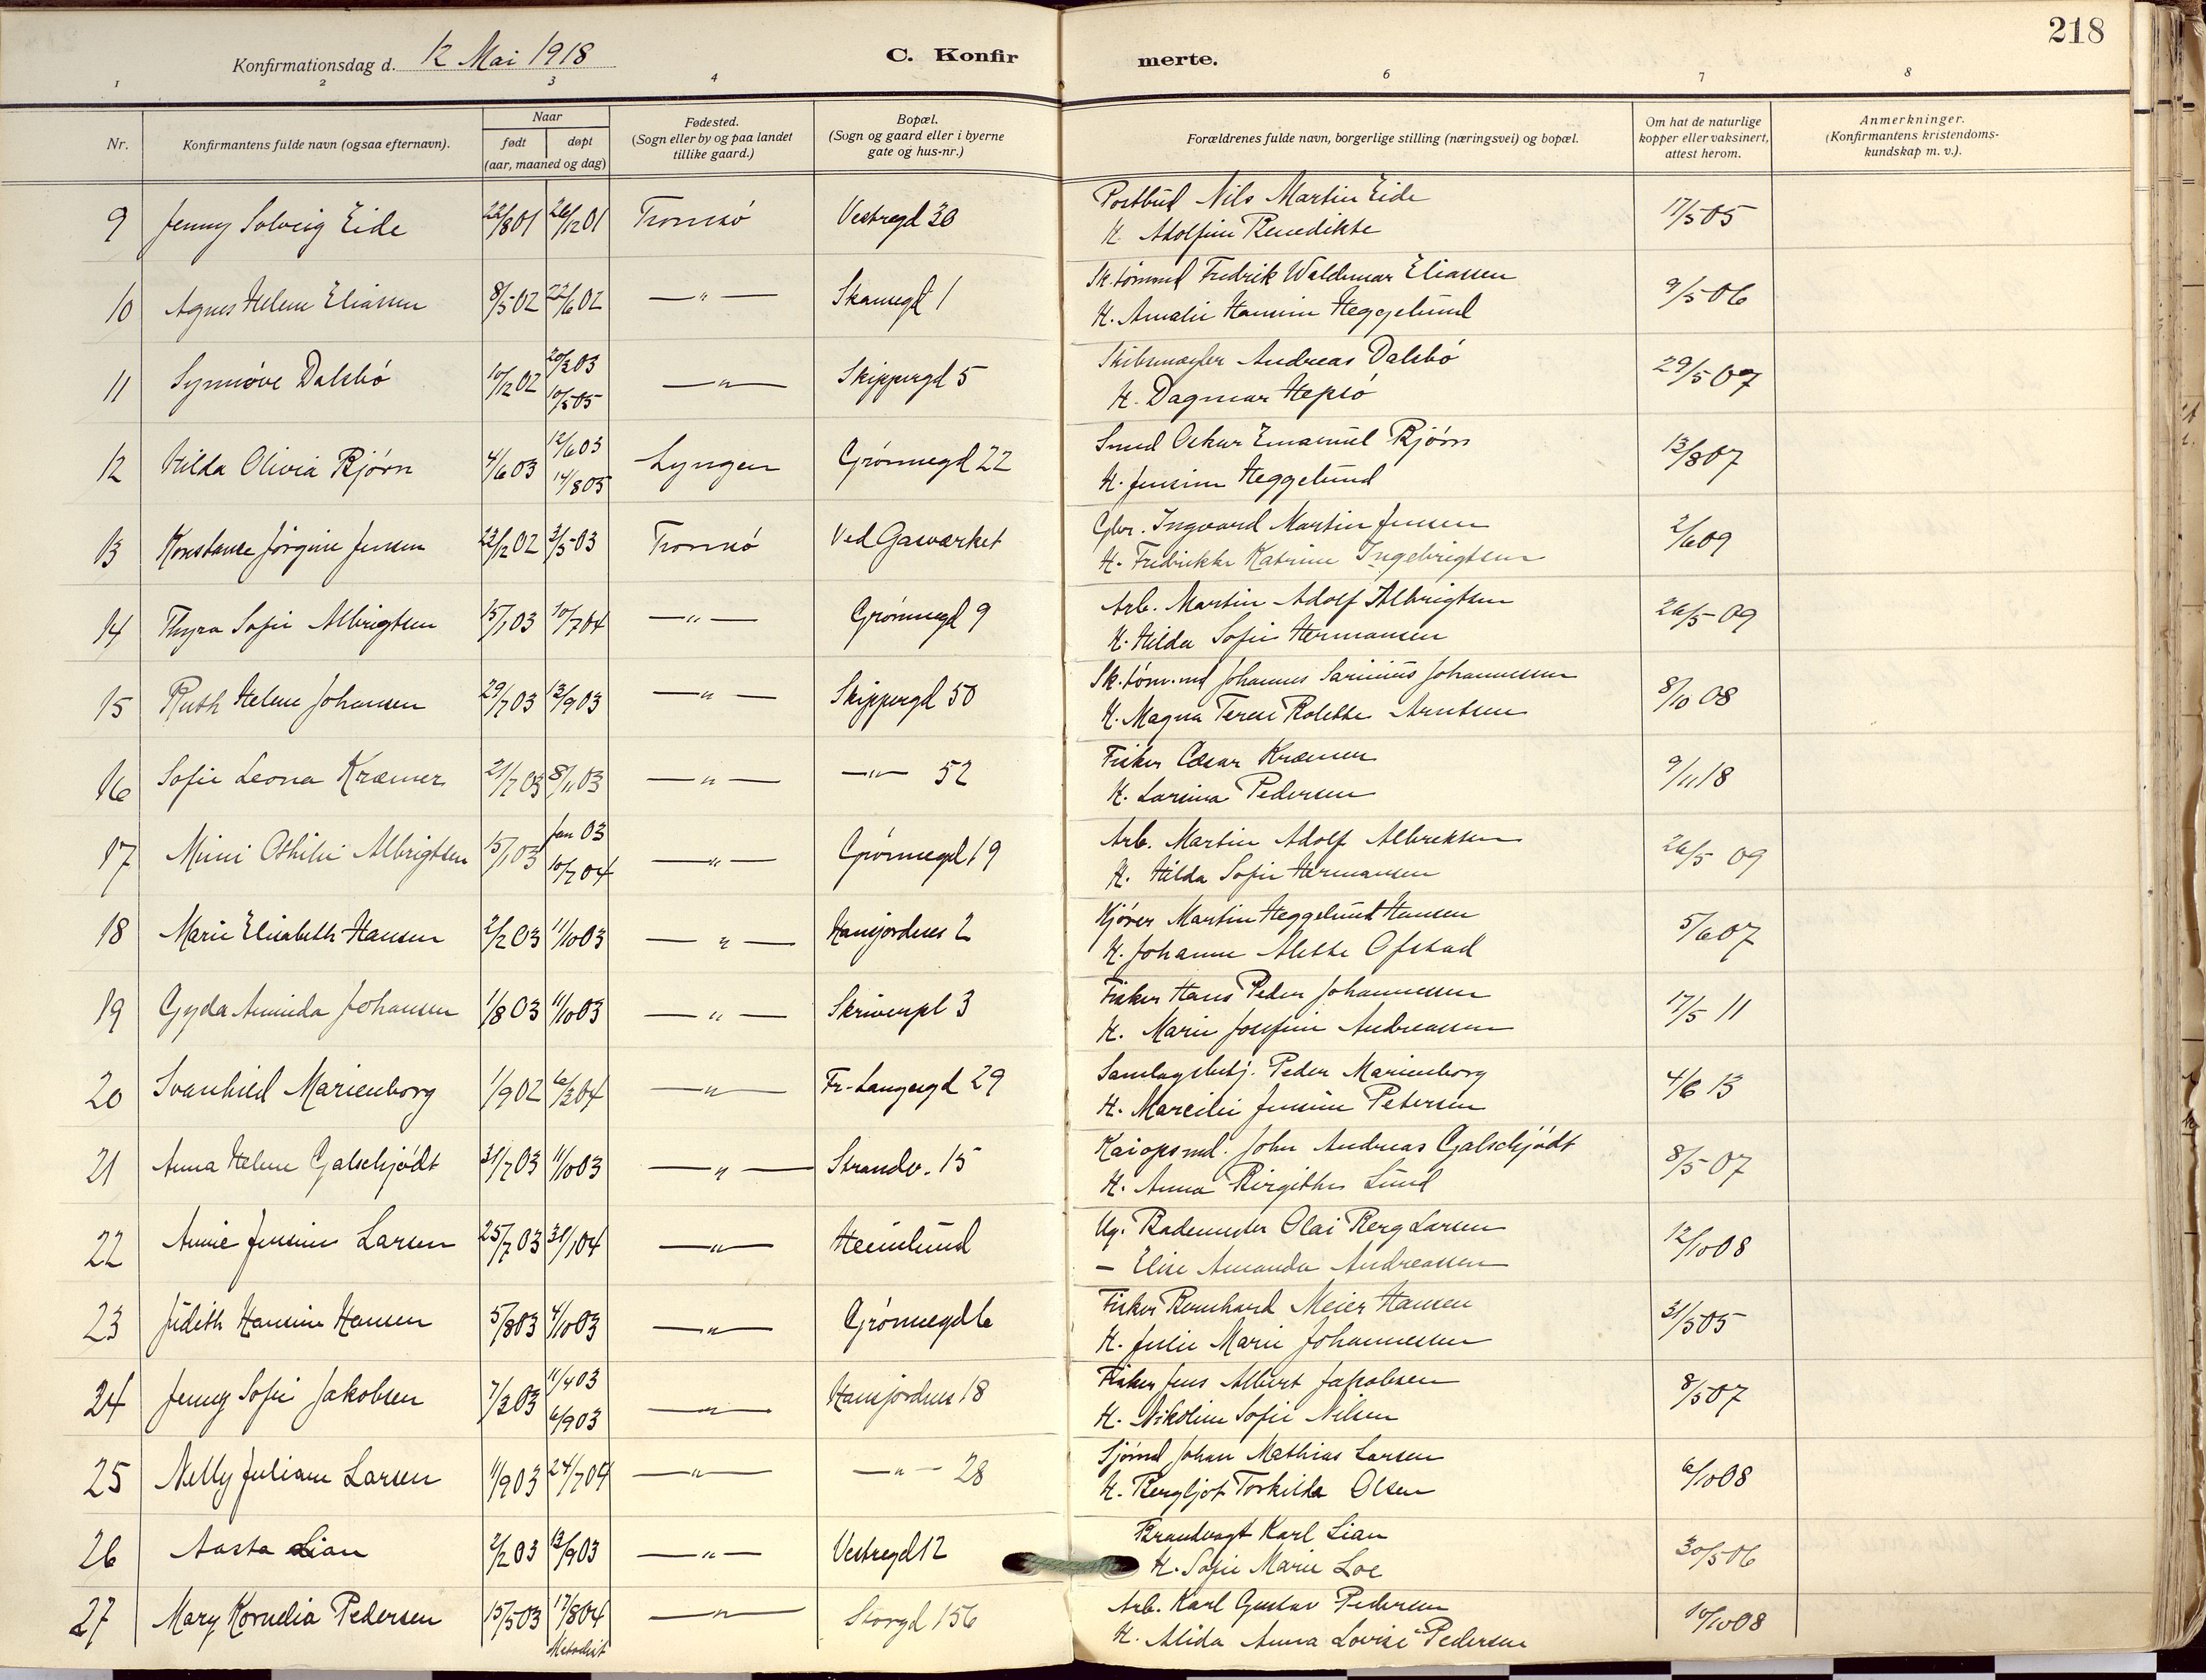 218
Konfirmationsdag d. 12 Mai 1918
C. Konfir merte.
1 2 3 4 6 7 8
Nr.
Konfirmantens fulde navn (ogsaa efternavn).
Naar
født døpt
(aar, maaned og dag)
Fødested.
(Sogn eller by og paa landet
tillike gaard.)
Bopæl.
(Sogn og gaard eller i byerne
gate og hus-nr.)
Forældrenes fulde navn, borgerlige stilling (næringsvei) og bopæl.
Om hat de naturlige
kopper eller vaksinert,
attest herom.
Anmerkninger.
(Konfirmantens kristendoms-
kundskap m. v.).
9 Jenny Solveig Eide 22/8 01 26/12 01 Tromsø Vestregd 30 Postbud Nils Martin Eide 17/5 05
H. Adolfine Benedikte
10 Agnes Helene Eliassen 8/5 02 22/6 02 —"— Skansegd 1 Sk.tømmd Fredrik Waldemar Eliassen 9/5 06
H. Amalie Hansine Heggelund
11 Synnøve Dalsbø 10/12 02 20/3 03 —"— Skippergd 5 Skibsmægler Andreas Dalsbø 29/5 07
10/5 05 H. Dagmar Hepsø
12 Hilda Olivia Bjørn 4/6 03 12/6 03 Lyngen Grønnegd 22 Smed Oskar Emanuel Bjørn 13/8 07
14/8 05 H. Jensine Heggelund
13 Konstanse Jørgine Jensen 23/12 02 3/5 03 Tromsø Ved Gasværket Glvr. Ingvard Martin Jensen 2/6 09
H. Fredrikke Katrine Ingebrigtsen
14 Thyra Sofie Albrigtsen 15/1 03 10/7 04 —"— Grønnegd 9 Arb. Martin Adolf Albrigtsen 26/5 09
H. Hilda Sofie Hermansen
15 Ruth Helene Johansen 29/7 03 13/9 03 —"— Skippergd 50 Sk.tøm.md Johannes Sarinius Johannessen 8/10 08
H. Magna Terese Rolette Arntsen
16 Sofie Leona Kræmer 21/7 03 8/11 03 —"— —"— 52 Fisker Cæsar Kræmer 9/11 18
H. Larsina Pedersen
17 Mimi Othilie Albrigtsen 15/1 03 Jan 03 —"— Grønnegd 19 Arb. Martin Adolf Albreksen 26/5 09
10/7 04 H. Hilda Sofie Hermansen
18 Marie Elisabeth Hansen 2/2 03 11/10 03 —"— Hansjordnes 2 Kjører Martin Heggelund Hansen 5/6 07
H. Johanne Alette Ofstad
19 Gyda Aminda Johansen 1/8 03 11/10 03 —"— Skriverpl 3 Fisker Hans Peder Johannessen 17/5 11
H. Marie Josefine Andreassen
20 Svanhild Marienborg 1/9 02 6/3 04 —"— Fr. Langesgd 29 Samlagsbetj. Peder Marienborg 4/6 13
H. Marcilie Jensine Petersen
21 Anna Helene Galschjødt 31/7 03 11/10 03 —"— Strandv. 15 Kaiopsmd. John Andreas Galschjødt 8/5 07
H. Anna Birgithe Lund
22 Annie Jensine Larsen 25/7 03 31/1 04 —"— Heimlund Ug. Bademester Olai Berg Larsen 12/10 08
— Elise Amanda Andreassen
23 Judith Hansine Hansen 5/8 03 4/10 03 —"— Grønnegd 6 Fisker Bernhard Meier Hansen 31/5 05
H. Julie Marie Johannessen
24 Jenny Sofie Jakobsen 7/3 03 11/4 03 —"— Hansjordnes 18 Fisker Jens Albert Jakobsen 8/5 07
6/9 03 H. Nikoline Sofie Nilsen
25 Nelly Juliane Larsen 11/9 03 24/7 04 —"— —"— 28 Sjømd Johan Mathias Larsen 6/10 08
H. Bergljot Torkilda Olsen
26 Aasta Lian 2/2 03 13/9 03 —"— Vestregd 12 Brandvagt Karl Lian 30/5 06
H. Sofie Marie Loe
27 Mary Kornelia Pedersen 15/5 03 17/8 04 —"— Storgd 156 Arb. Karl Gustav Pedersen 10/10 08
Metodist H. Alida Anna Lovise Pedersen